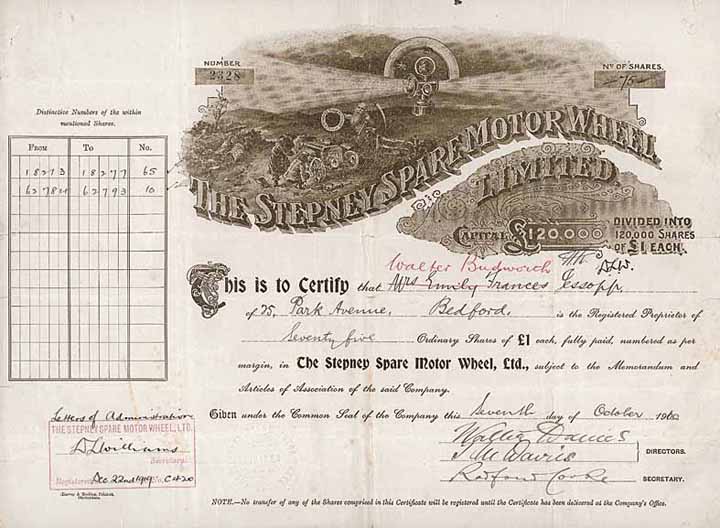 NUMBER
2328
Nº OF SHARES.
75
THE STEPNEY SPARE MOTOR WHEEL
LIMITED
CAPITAL £120,000
DIVIDED INTO
120,000 SHARES
OF £1 EACH.
Distinctive Numbers of the within
mentioned Shares.
FROM TO No.
18213 18277 65
62784 62793 10
Walter Budworth
This is to Certify that Mrs Emily Frances Jessopp,
of 75, Park Avenue, Bedford. is the Registered Proprietor of
Seventy five Ordinary Shares of £1 each, fully paid, numbered as per
margin, in The Stepney Spare Motor Wheel, Ltd., subject to the Memorandum and
Articles of Association of the said Company.
Given under the Common Seal of the Company this Seventh day of October 190
Walter Davies
T M Davies
DIRECTORS.
Radford Cooke
SECRETARY.
Letters of Administration
THE STEPNEY SPARE MOTOR WHEEL, LTD.
D L Williams
Secretary.
Registered Dec 22nd 1919 No. C420
NOTE.—No transfer of any of the Shares comprised in this Certificate will be registered until the Certificate has been delivered at the Company's Office.